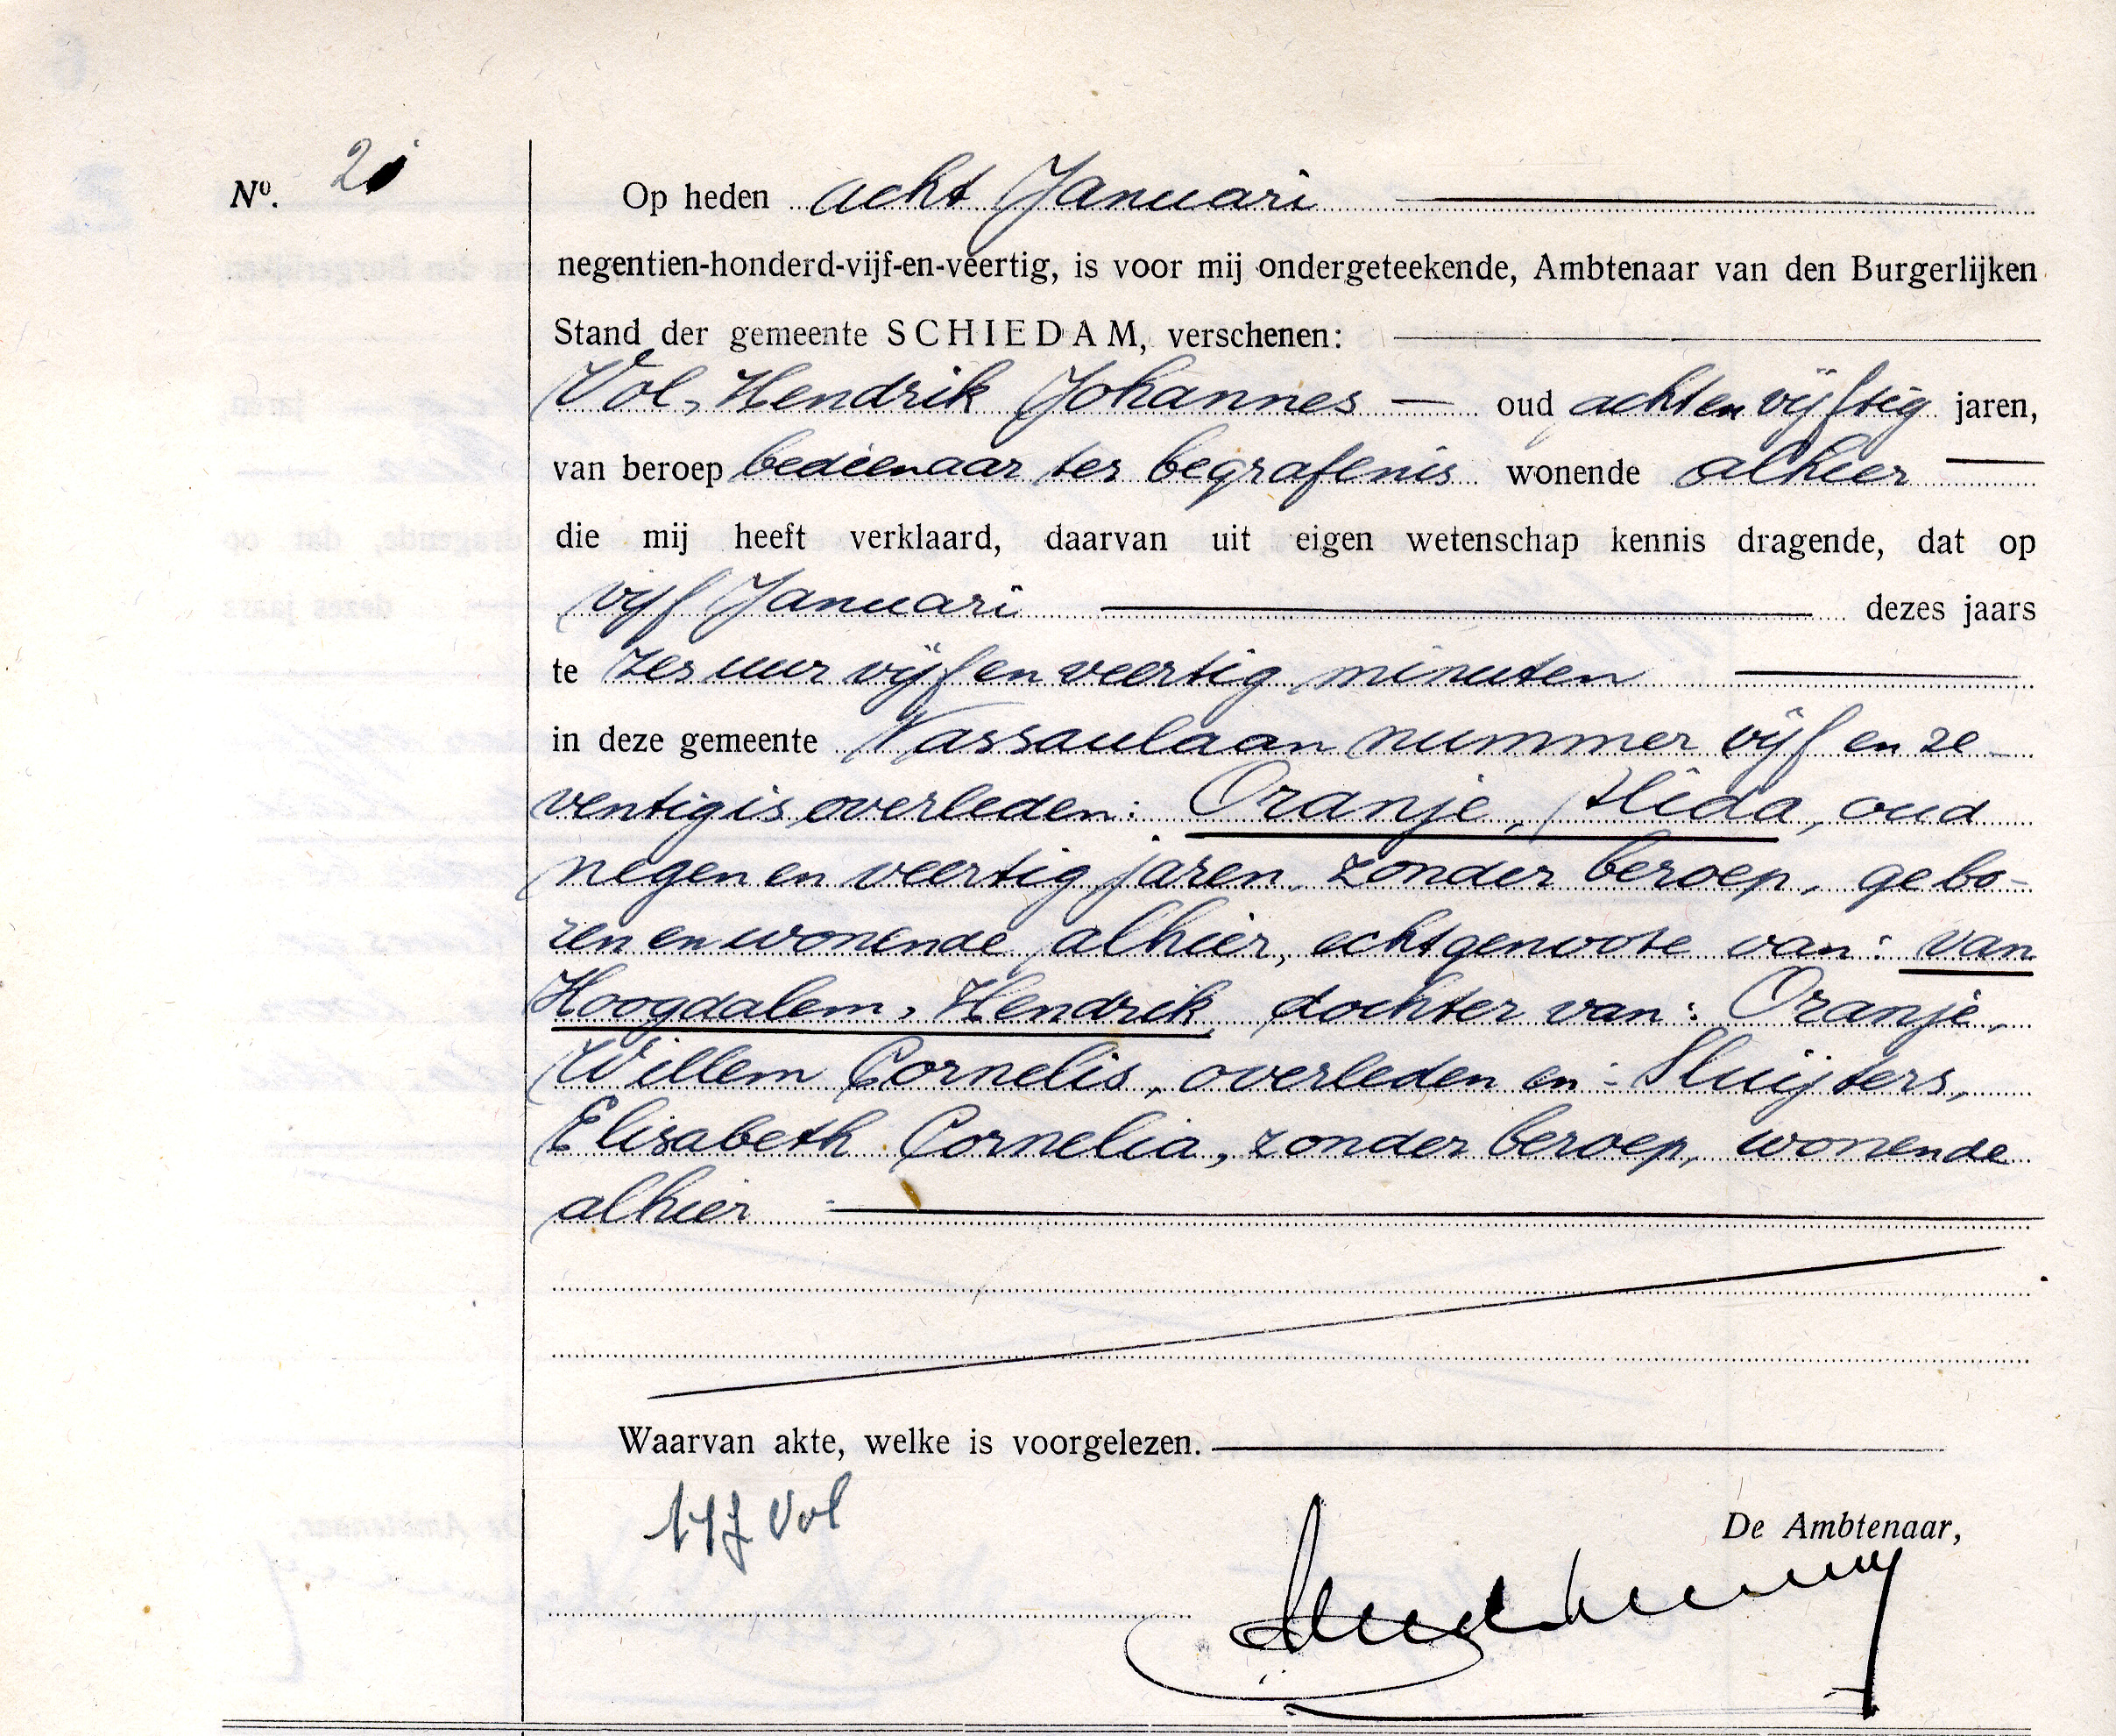 Nº. 21
Op heden acht Januari
negentien-honderd-vijf-en-veertig, is voor mij ondergeteekende, Ambtenaar van den Burgerlijken
Stand der gemeente SCHIEDAM, verschenen:
Vol, Hendrik Johannes — oud achtenvijftig jaren,
van beroep bedienaar ter begrafenis wonende alhier
die mij heeft verklaard, daarvan uit eigen wetenschap kennis dragende, dat op
vijf Januari dezes jaars
te zes uur vijf en veertig minuten
in deze gemeente Nassaulaan nummer vijf en ze-
ventig is overleden: Oranje, Alida, oud
negen en veertig jaren, zonder beroep, gebo-
ren en wonende alhier, echtgenoote van: van
Hoogdalem, Hendrik, dochter van: Oranje,
Willem Cornelis, overleden en: Sluijters,
Elisabeth Cornelia, zonder beroep, wonende
alhier
Waarvan akte, welke is voorgelezen.
HJ Vol
De Ambtenaar,